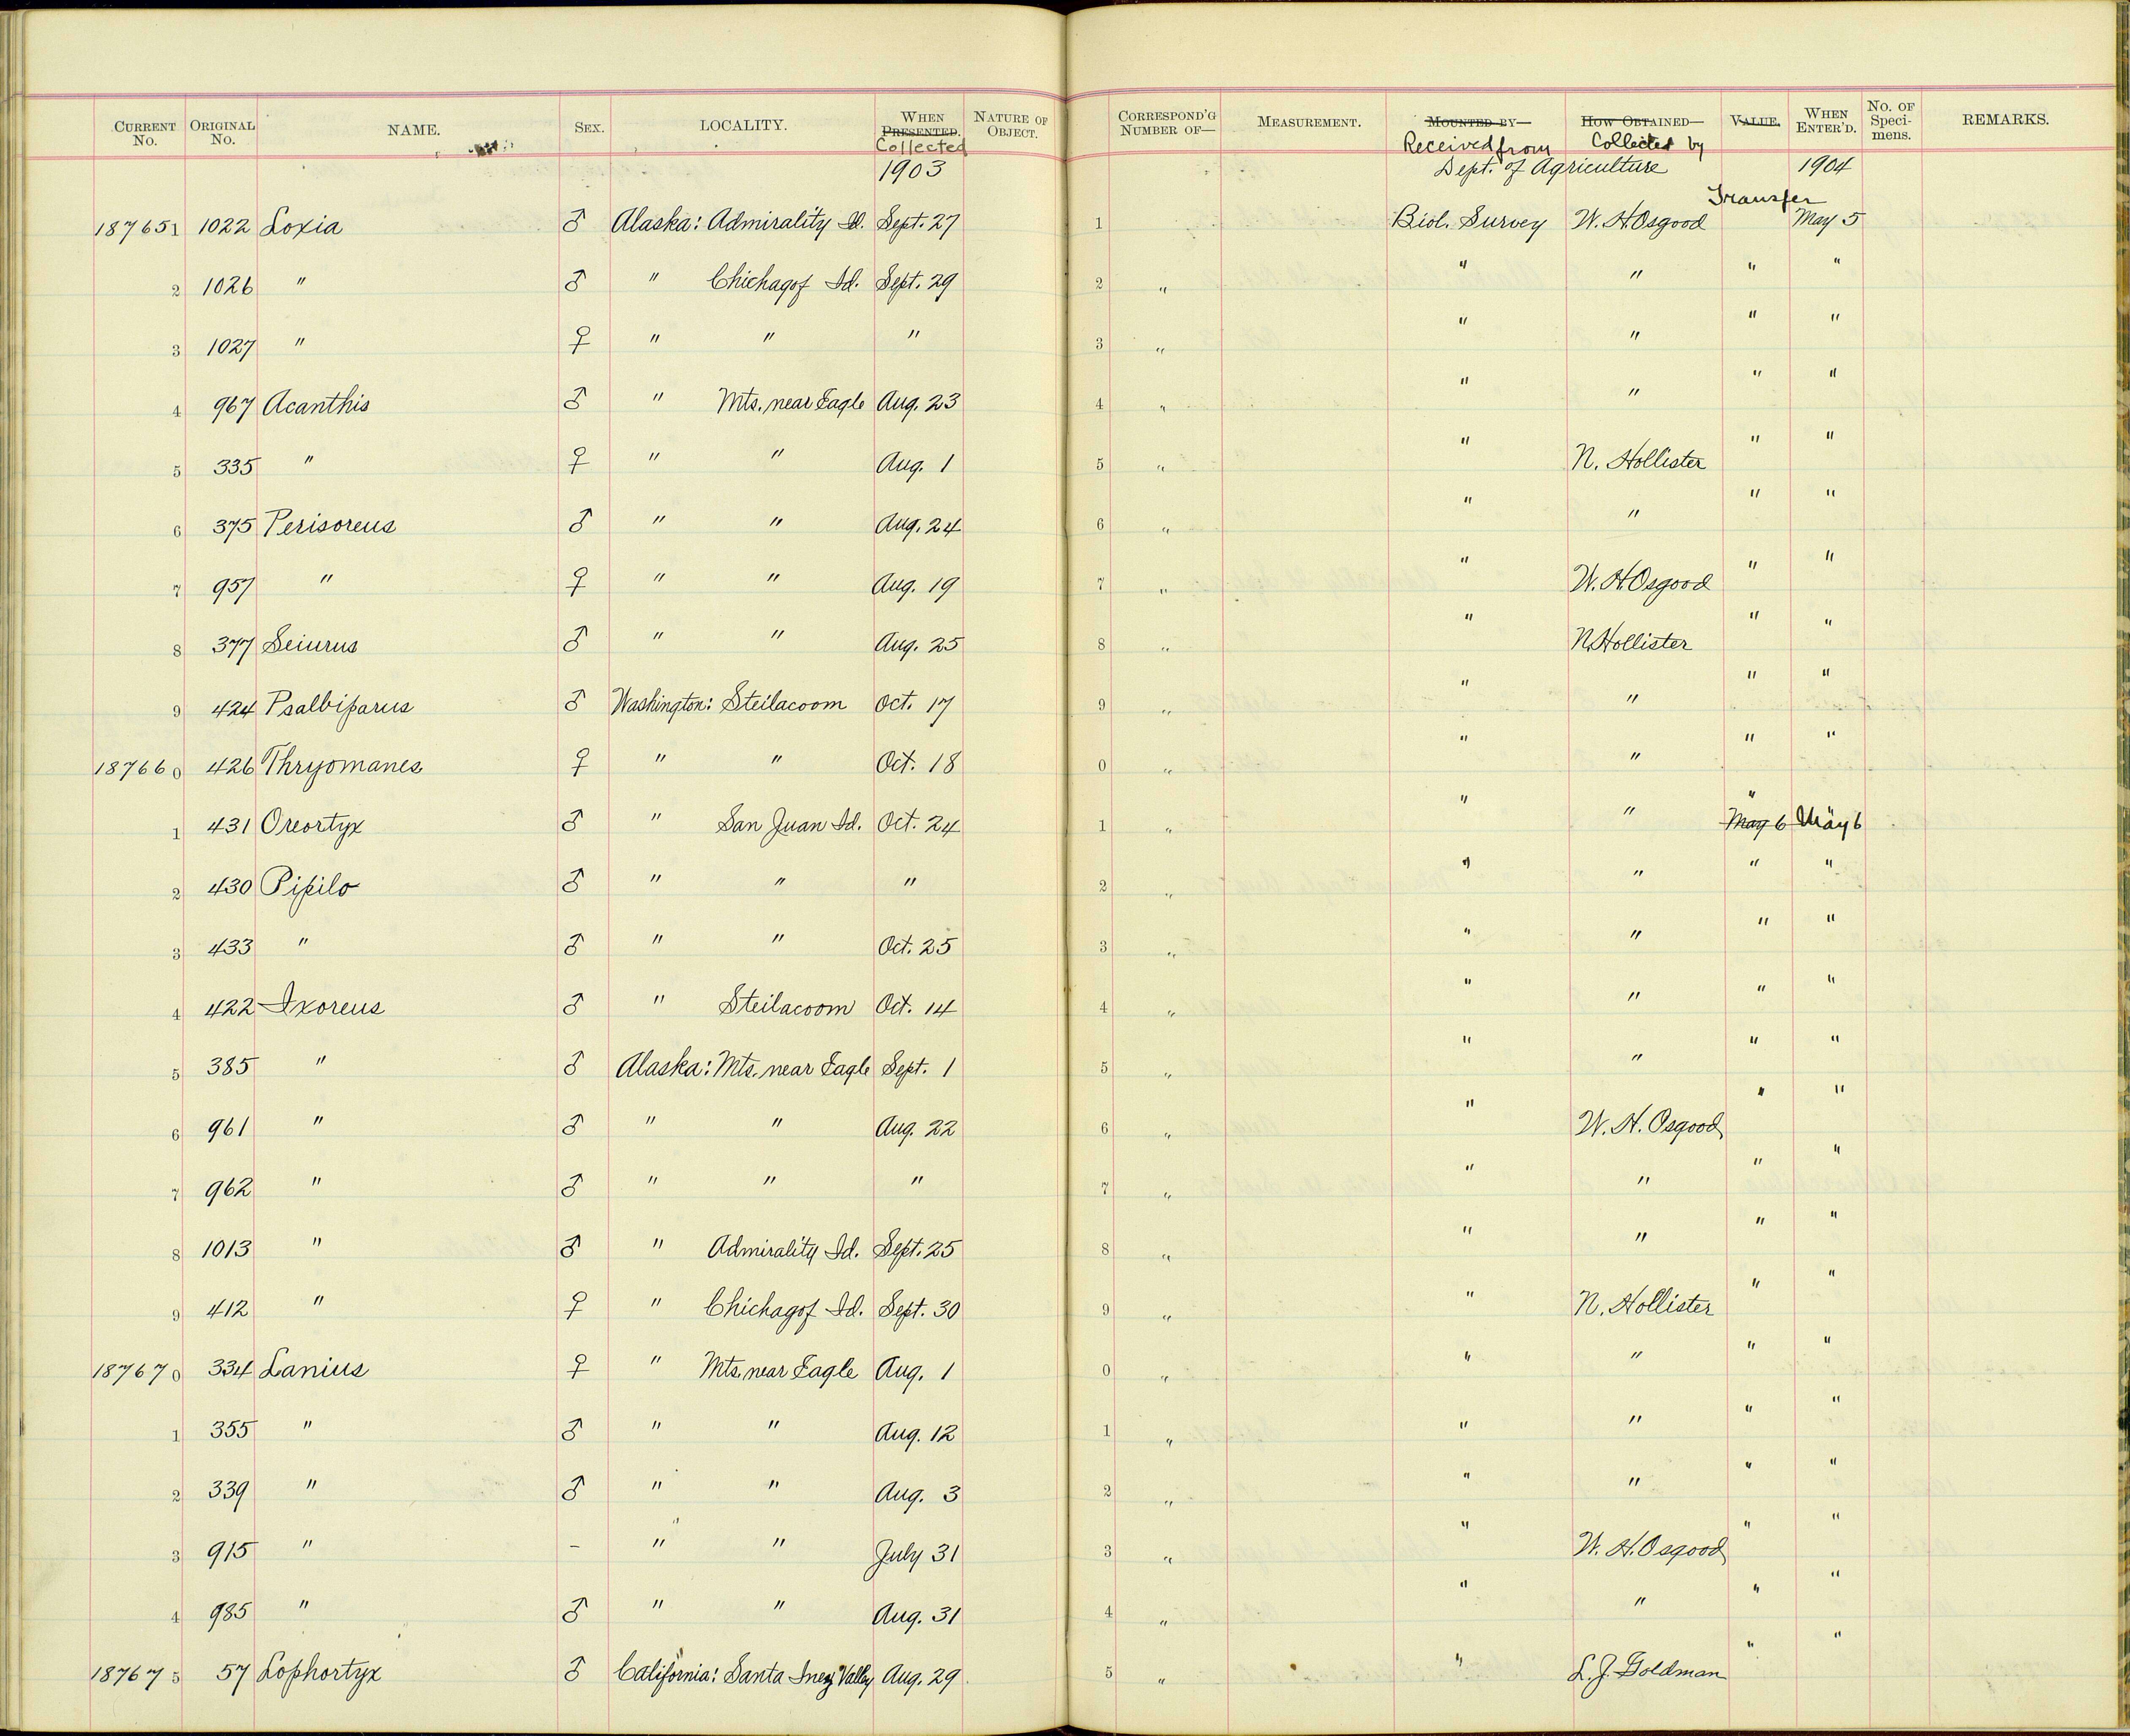 CURRENT No. ORIGINAL No. NAME. SEX. LOCALITY. WHEN PRESENTED. Collected NATURE OF OBJECT. CORRESPOND'G NUMBER OF— MEASUREMENT. MOUNTED BY— Received from HOW OBTAINED— Collected by VALUE. WHEN ENTER'D. No. OF Speci-mens. REMARKS.
1903 Dept. of Agriculture 1904
Transfer
187651 1022 Loxia ♂ Alaska: Admirality Id. Sept. 27 1 Biol. Survey W. H. Osgood May 5
2 1026 " ♂ " Chichagof Id. Sept. 29 2 " " " " "
3 1027 " ♀ " " " 3 " " " " "
4 967 Acanthis ♂ " Mts. near Eagle Aug. 23 4 " " " " "
5 335 " ♀ " " Aug. 1 5 " " N. Hollister " "
6 375 Perisoreus ♂ " " Aug. 24 6 " " " " "
7 957 " ♀ " " Aug. 19 7 " " W. H. Osgood " "
8 377 Seiurus ♂ " " Aug. 25 8 " " N. Hollister " "
9 424 Psalbiparus ♂ Washington: Steilacoom Oct. 17 9 " " " " "
187660 426 Thryomanes ♀ " " Oct. 18 0 " " " " "
1 431 Oreortyx ♂ " San Juan Id. Oct. 24 1 " " " " May 6 May 6
2 430 Pipilo ♂ " " " 2 " " " " "
3 433 " ♂ " " Oct. 25 3 " " " " "
4 422 Ixoreus ♂ " Steilacoom Oct. 14 4 " " " " "
5 385 " ♂ Alaska: Mts. near Eagle Sept. 1 5 " " " " "
6 961 " ♂ " " Aug. 22 6 " " W. H. Osgood " "
7 962 " ♂ " " " 7 " " " " "
8 1013 " ♂ " Admirality Id. Sept. 25 8 " " " " "
9 412 " ♀ " Chichagof Id. Sept. 30 9 " " N. Hollister " "
187670 334 Lanius ♀ " Mts. near Eagle Aug. 1 0 " " " " "
1 355 " ♂ " " Aug. 12 1 " " " " "
2 339 " ♂ " " Aug. 3 2 " " " " "
3 915 " – " " July 31 3 " " W. H. Osgood " "
4 985 " ♂ " " Aug. 31 4 " " " " "
187675 57 Lophortyx ♂ California: Santa Inez Valley Aug. 29 5 " " L. J. Goldman " "